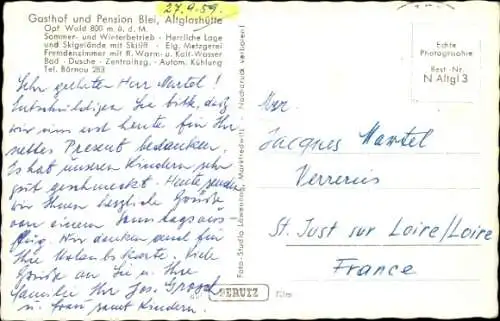 27.9.59.
Gasthof und Pension Blei, Altglashütte
Opf. Wald 800 m ü. d. M.
Sommer- und Winterbetrieb - Herrliche Lage
und Skigelände mit Skilift - Eig. Metzgerei
Fremdenzimmer mit fl. Warm- u. Kalt-Wasser
Bad - Dusche - Zentralhzg. - Autom. Kühlung
Tel. Bärnau 283
Sehr geehrter Herr Martel!
Entschuldigen Sie bitte, daß
wir uns erst heute für Ihr
nettes Present bedanken.
Es hat unseren Kindern sehr
gut geschmeckt. Heute senden
wir Ihnen herzliche Grüße
von einem Sonntagsaus-
flug. Wir danken auch für
Ihre Urlaubskarte. Viele
Grüße an Sie u. Ihre
Familie Ihr Jos.
u. Frau samt Kindern.
Foto-Studio Löwenhag, Marktredwitz - Nachdruck verboten!
PERUTZ
Film
Echte
Photographie
Best.-Nr.
N Altgl 3
Jacques Martel
Verreries
St. Just sur Loire/Loire
France